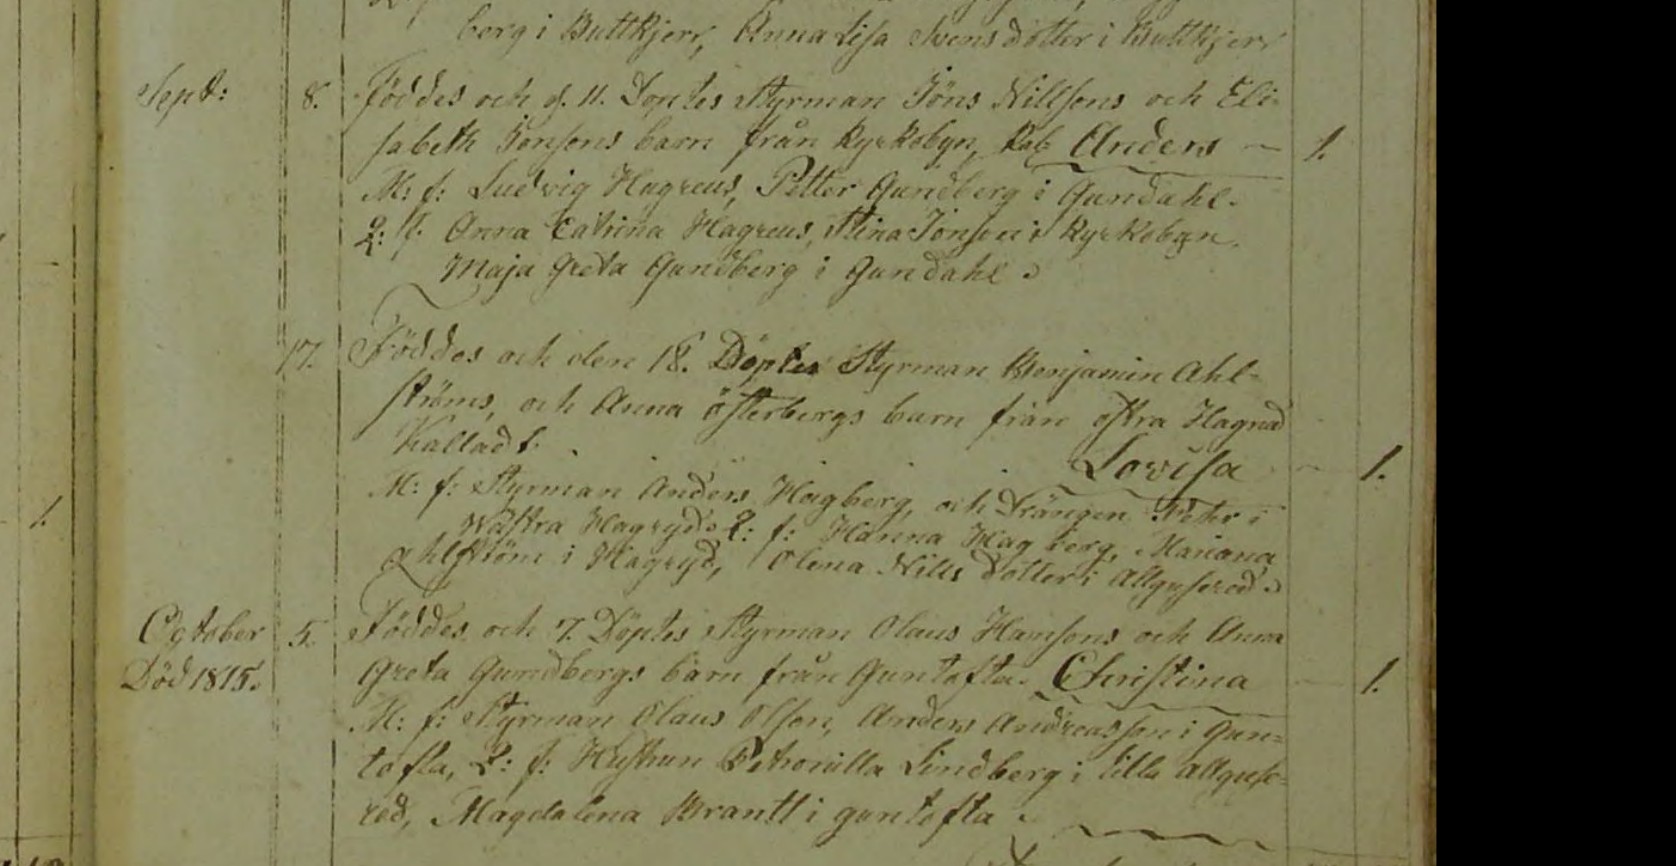 berg i Buttkjerr, Anna Lisa Svens dotter i Buttkjerr
Sept: 8. Föddes och d. 11. Döptes Styrman Jöns Nillsons och Eli-
sabeth Jonsons barn från Kyrkobyn, Kab Anders — 1.
M: f: Ludvig Hagreus, Petter Gundberg i Gundahl.
Q: f. Anna Catrina Hagreus, Stina Jonson i Kyrkobyn.
Maja Greta Gundberg i Gundahl.
17. Föddes och den 18. Döptes Styrman Benjamin Ahl-
ströms, och Anna Österbergs barn från östra Hagnad
Kalladt. Lovisa — 1.
M: f: Styrman Anders Hagberg, och Drängen Peter i
Wästra Hagryd. Q: f: Hanna Hagberg, Mariana
Ahlström i Hagryd, Olena Nills dotter i Allgusered.
October 5. Föddes och 7. Döptes Styrman Olaus Hansons och Anna
Död 1815. Greta Gundbergs barn från Guntofta. Christina — 1.
M: f: Styrman Olaus Olson, Anders Andreasson i Gun-
tofta, Q: f: Hustrun Petronilla Lindberg i lilla Allguse-
red, Magdalena Brantt i guntofta.
1.